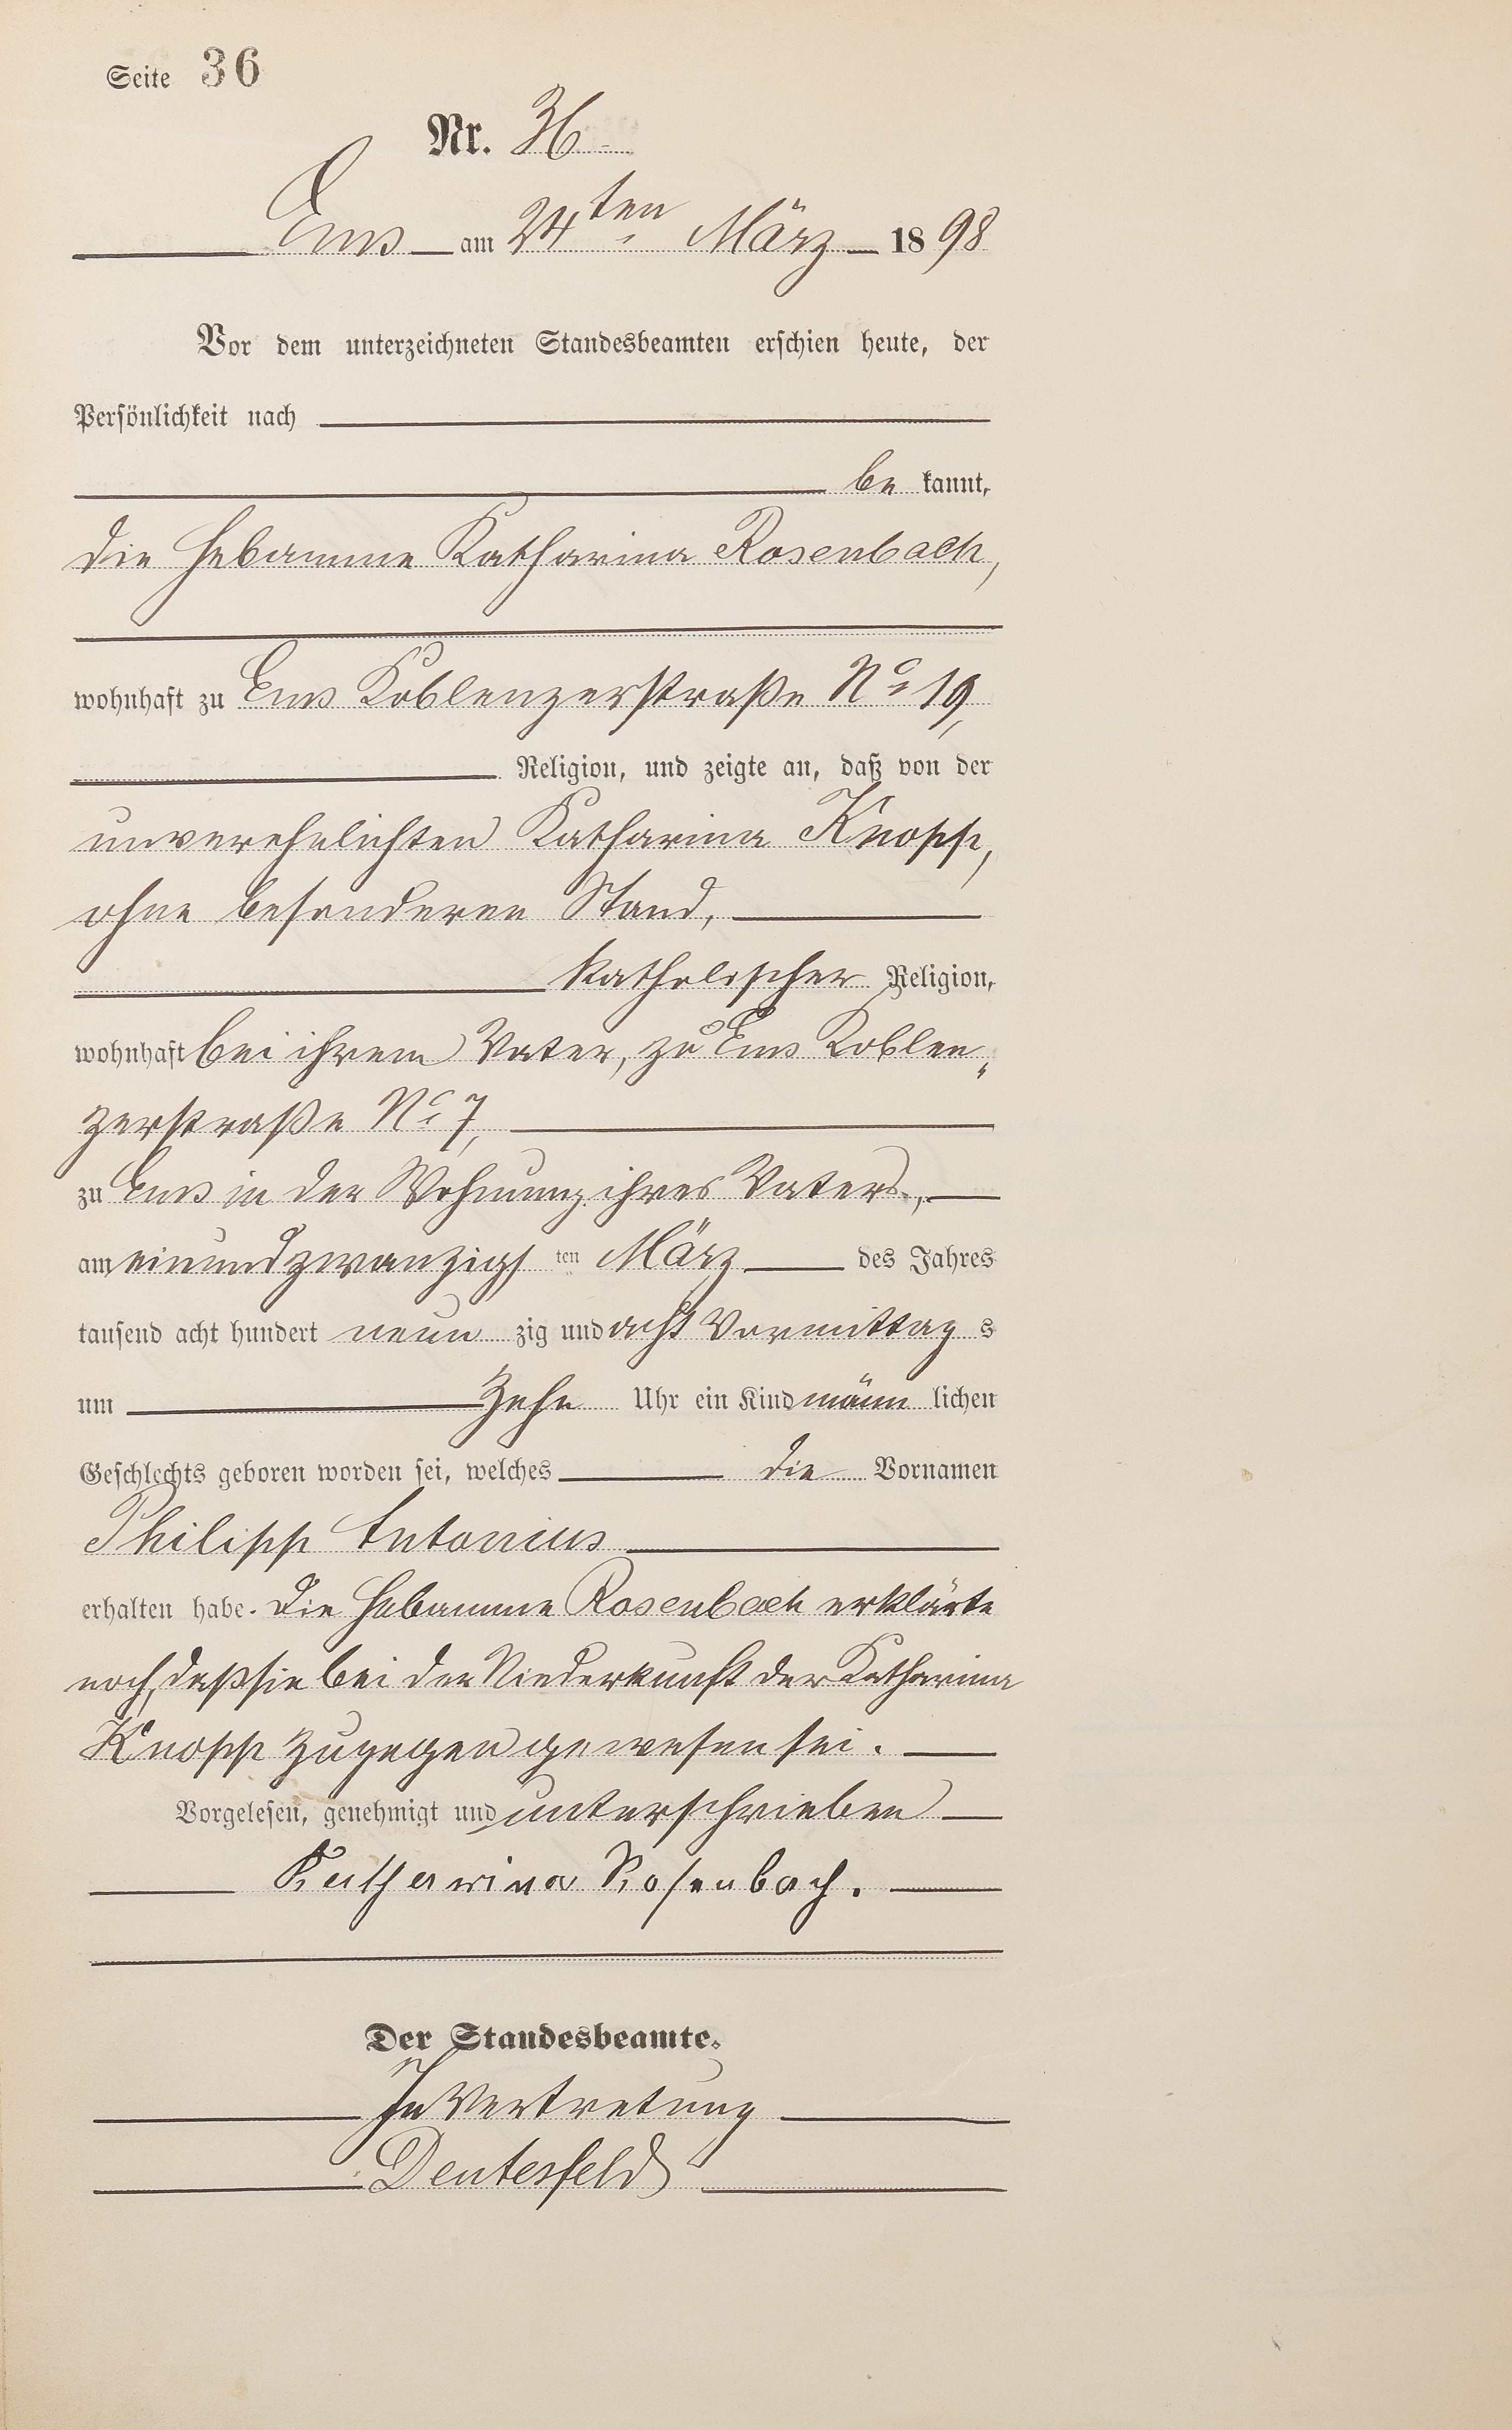 Seite 36
Nr. 36
Ems am 24ten März 1898
Vor dem unterzeichneten Standesbeamten erschien heute, der
Persönlichkeit nach
be kannt,
die Hebamme Katharina Rosenbach,
wohnhaft zu Ems Koblenzerstraße No 19,
Religion, und zeigte an, daß von der
unverehelichten Katharina Knopp,
ohne besonderen Stand,
katholischer Religion,
wohnhaft bei ihrem Vater, zu Ems Koblen„
zerstraße No 7,
zu Ems in der Wohnung ihres Vaters,
am einundzwanzigs ten März des Jahres
tausend acht hundert neun zig und acht Vormittag s
um zehn Uhr ein Kind männ lichen
Geschlechts geboren worden sei, welches die Vornamen
Philipp Antonius
erhalten habe. Die Hebamme Rosenbach erklärte
noch, daß sie bei der Niederkunft der Katharina
Knopp zugegen gewesen sei.
Vorgelesen, genehmigt und unterschrieben
Katharina Rosenbach.
Der Standesbeamte.
In Vertretung
Deutesfeld